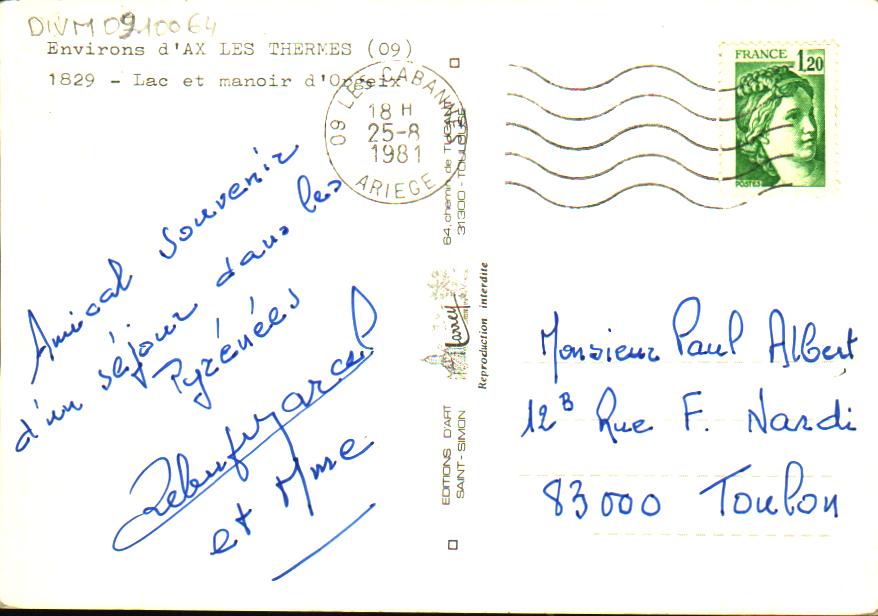 DIVM 0910064
Environs d'AX LES THERMES (09)
1829 - Lac et manoir d'Orgeix
09 LES CABANNES
18 H
25-8
1981
ARIEGE
FRANCE 1,20
POSTES
Amical souvenir
d'un séjour dans les
Pyrénées
et Mme
EDITIONS D'ART
SAINT-SIMON
Reproduction interdite
31300 - TOULOUSE
Monsieur Paul Albert
12B Rue F. Nardi
83000 Toulon